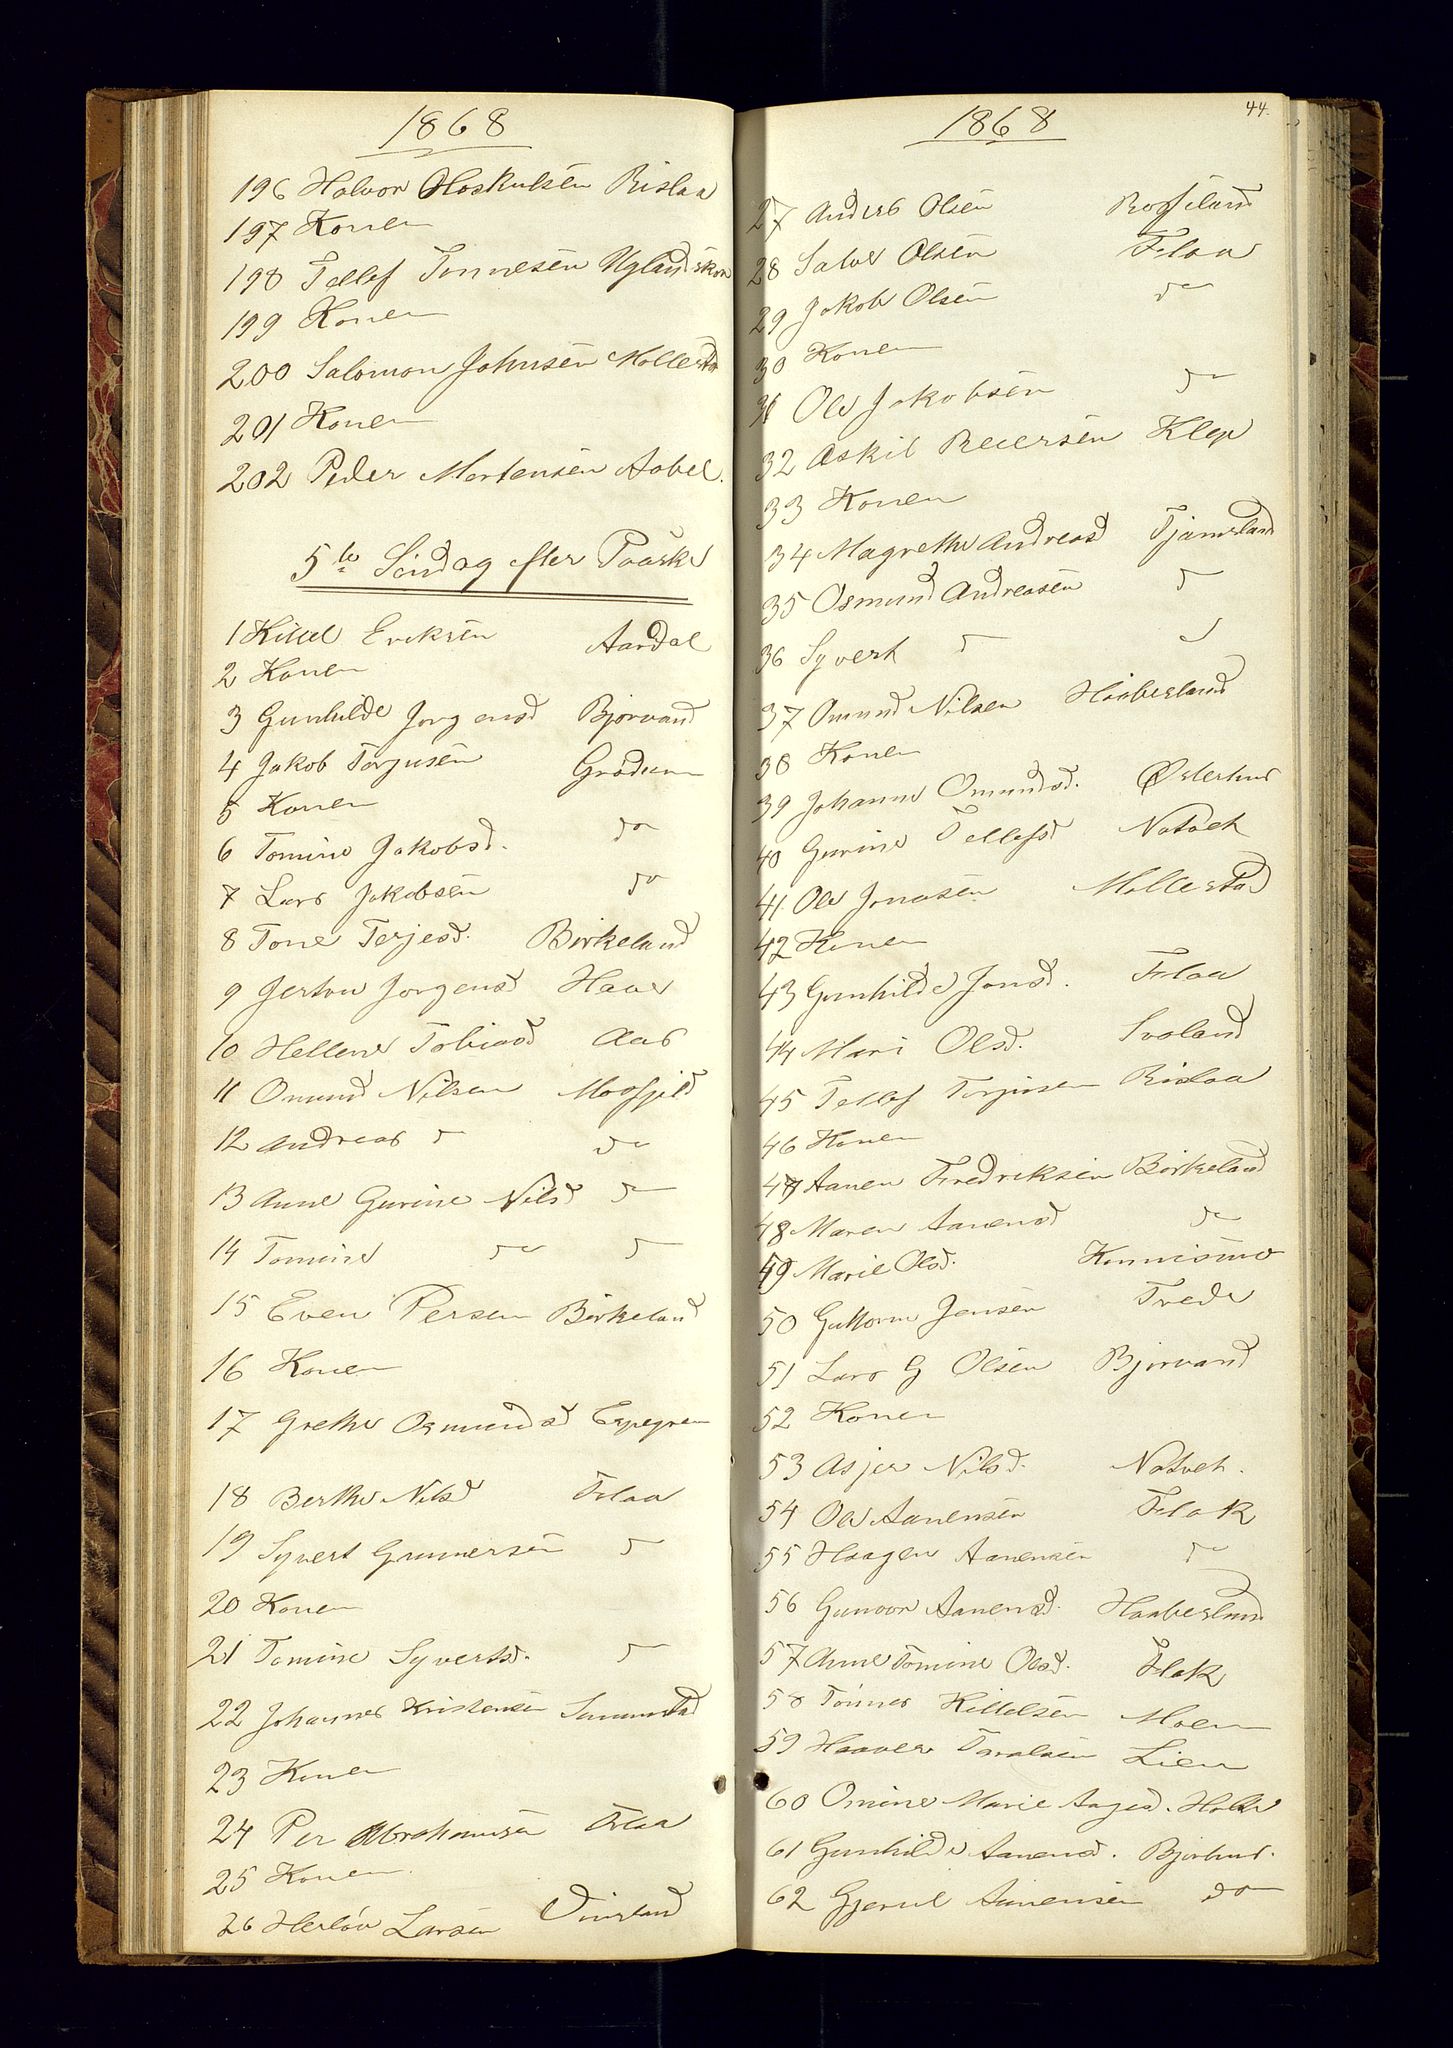 1868
196 Halvor Hoskulsen Rislaa
197 Konen
198 Tellef Tonnesen Uglandskon
199 Konen
200 Salomon Johnsen Mollestа
201 Konen
202 Peder Mortensen Aabel.
5te Söndag efter Paaske
1 Kittel Eriksen Aardal
2 Konen
3 Gunhilde Jorgensd Bjorvand
4 Jakob Torjusen Grodum
5 Konen
6 Tomine Jakobsd. do
7 Lars Jakobsen do
8 Tone Terjesd. Birkeland
9 Jorgensd Haave
10 Hellene Tobiasd Aas
11 Omund Nilsen Mosfjeld
12 Andreas d do
13 Anne Gurine Nilsd do
14 Tomine do d
15 Even Persen Birkeland
16 Konen
17 Grethe Osmundsd Espegren
18 Berthe Nilsd Flaa
19 Syvert Gunnersen d
20 Konen
21 Tomine Syvertsd. d
22 Johannes Kristensen
23 Konen
24 Per Abrahamsen Flaa
25 Konen.
26 Herlöv Larsen Vinsland
1868
44.
27 Anders Olsen Rosseland
28 Salve Olsen Flaa
29 Jakob Olsen do
30 Konen
31 Ole Jakobsen do
32 Askil Reiersen Klep
33 Konen
34 Magrethe Andreasd Tjomsland
35 Osmund Andreasen d
36 Syvert d d
37 Omund Nilsen Haaberland
38 Konen
39 Johanne Omundsd. Østerhus
40 Gurine Tellefsd Natvet
41 Ole Jonasen Mollestad
42 Konen
43 Gunhilde Jonsd. Flaa
44 Mari Olsd. Svaland
45 Tellef Torjusen Rislaa
46 Konen
47 Aanen Fredriksen Birkeland
48 Maren Aanensd do
49 Marie Olsd. Kunnismo
50 Guttorm Jensen Trede
51 Lars G Olsen Bjorvand
52 Konen
53 Asjer Nilsd. Natvet.
54 Ole Aanensen Flak
55 Haagen Aanensen do
56 Gunvor Aanensd. Haaberland
57 Anne Tomine Olsd. Flak
58 Tönnes Kittelsen Moen
59 Haaver Taralsen Lien
60 Omine Marie Aagesd. Holte
61 Gunhilde Aanensd. Bjorhus.
62 Gjerul Aanensen do